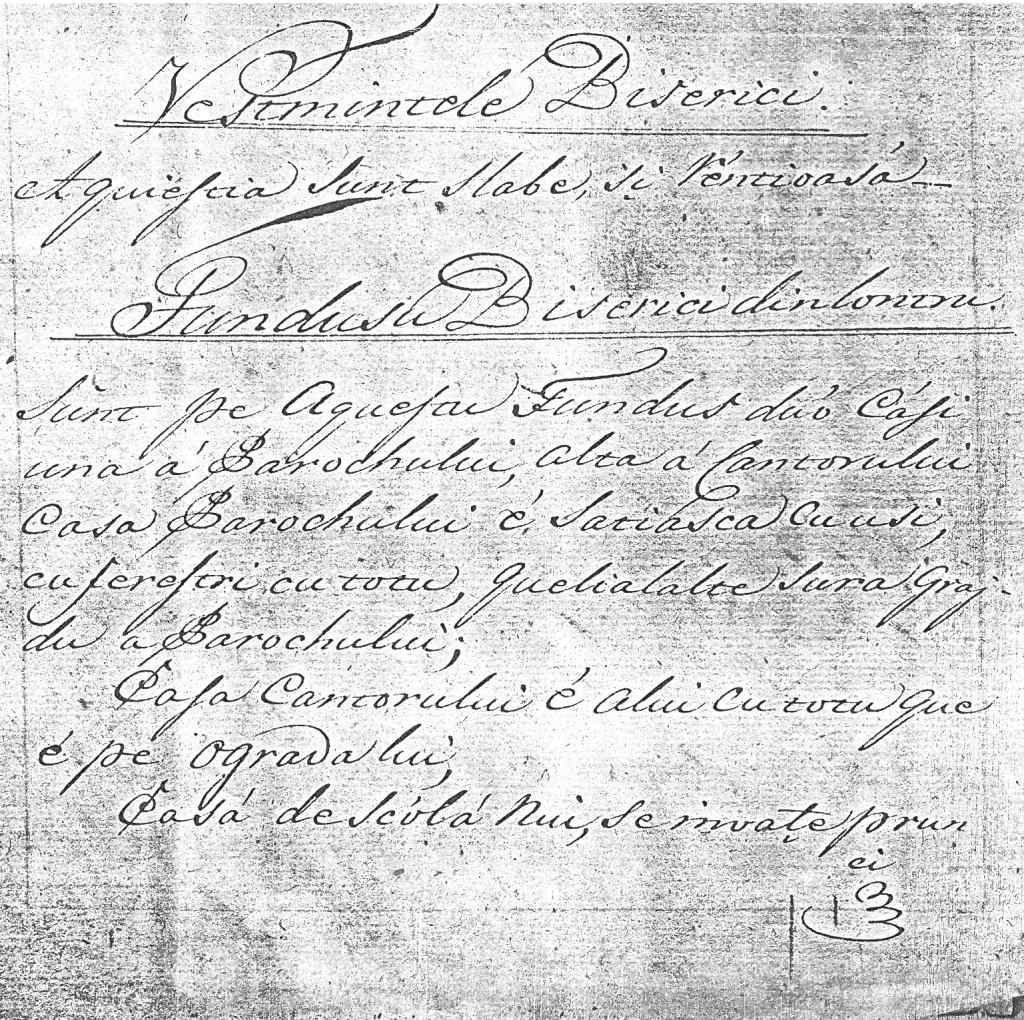 Vestmintele Biserici.
Aquieſtia sunt slabe, si Ventioasá
Fundusu Biserici dinlontru.
Sunt pe Aqueſtu Fundus dúo Cáſi
una á Parochului, alta á Cantorului
Casa Parochului é, satiasca cu usi,
cu fereſtri cu totu, quelialalte sura Graj-
du a Parochului;
Caſa Cantorului é alui cu totu que
é pe ograda lui,
Casá de scólá nui, se invaţe prun
ci